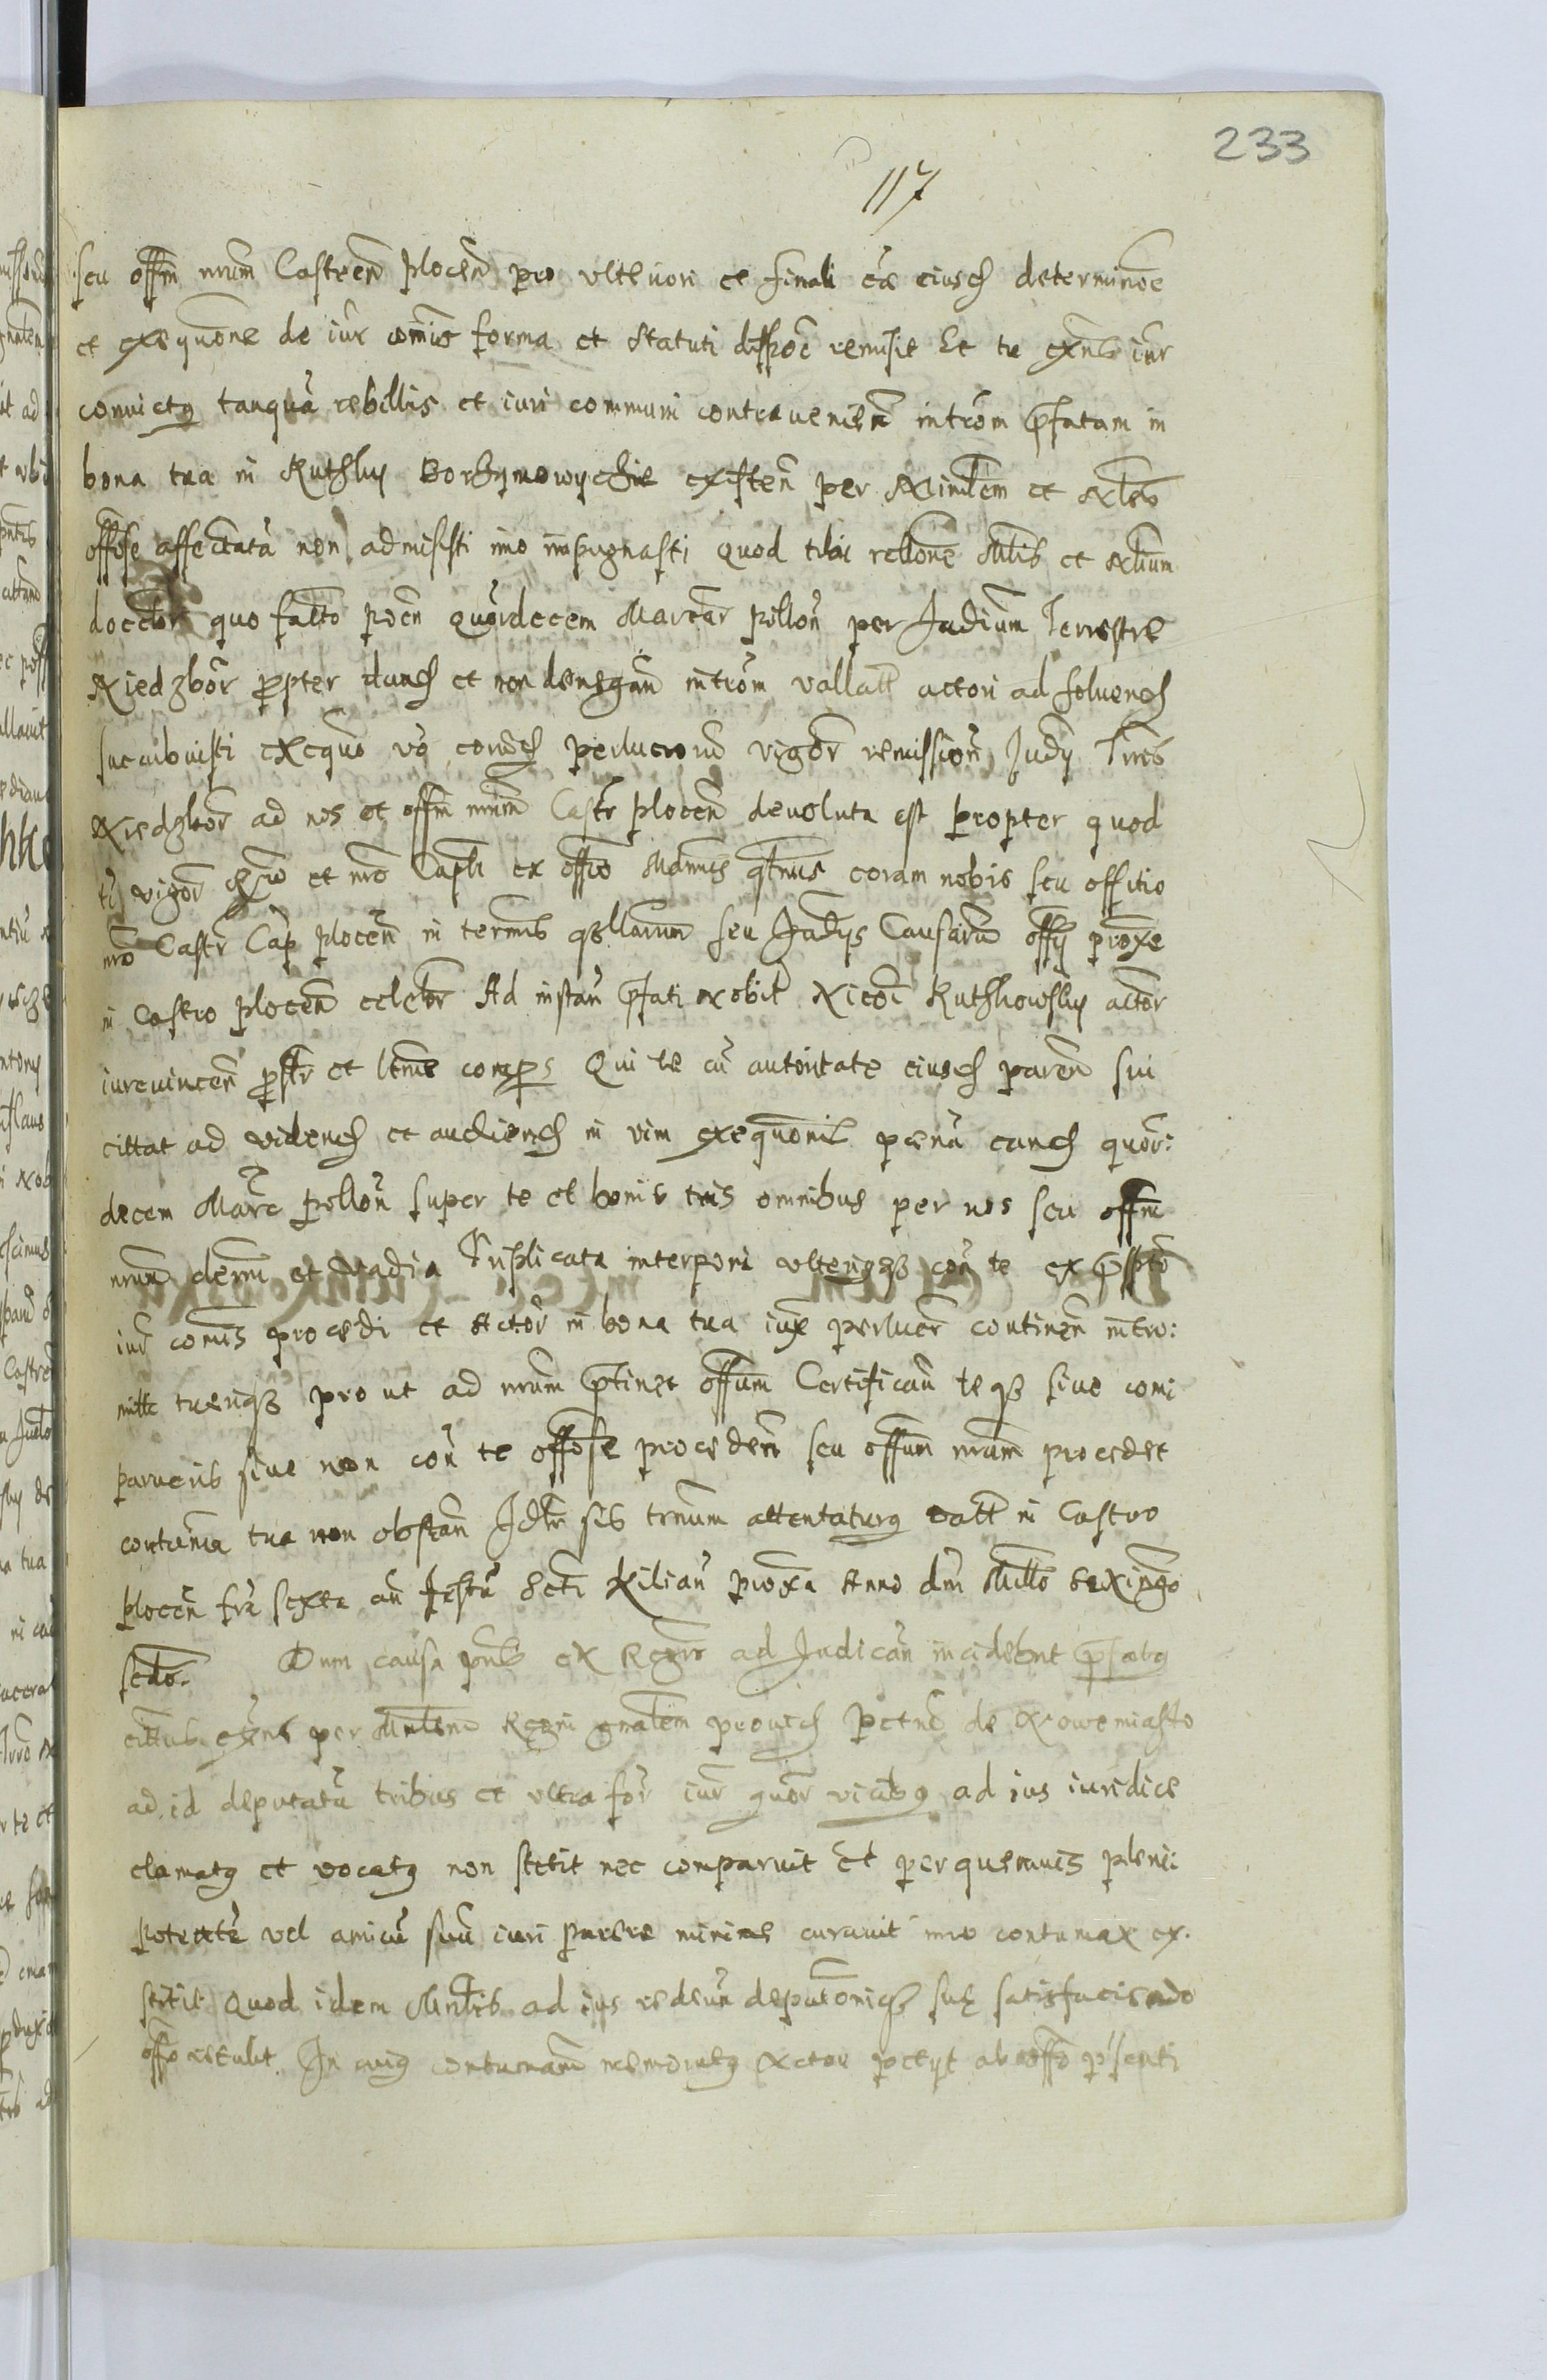 233
117
seu offm nrum Castren plocen pro vlteriori et finali cae eiusd determinoe
et exequone de iur comnis forma et Statuti dispoe remisit Et tu exns iur
convictq tanqua rebillis et iuri communi contrauenien introm pfatam in
bona tua in Kutzky Borzymowychie existen per Minrlem et Nbles
offose affectata non admisisti imo impugnasti quod tibi rellone Mlis et Nlium
docebitr quo facto poen quordecem Marcar pollon per Judium Terrestre
Niedzbor propter dand et non denegan introm vallatt actori ad soluend
succubuisti exequo vo eorund perlucrorum vigore remission Judy Trris
Niedzbor ad nos et offm nrum Castr plocen devoluta est propter quod
ti vigore et nro Capli ex offio Mamus qtnus coram nobis seu offitio
nro Castr Cap plocen in termis qrllarum seu Judys Causarum offy proxe
in Castro plocen celebr Ad instan pfati nobil Nicoi Kutzkowsky actor
iurevincen pstr et ltme compas Qui te cu autoritate eiusd paren sui
cittat ad vidend et audiend in vim exequonis paena eand quor:
decem Marc pollon super te et bonis tuis omnibus per nos seu offm
nrum decerni et vadia Triplicata interponi vlteriqz con te ex pscpto
iur comis procedi et Actor in bona tua iux perlucr continen intro:
mitte tueriqz pro ut ad nrum ptinet offum Certifican teqz siue com
parueris siue non con te offose procedem seu offum nrum procedet
contumia tua non obstan Idtr sib trnum attentaturq Datt in Castro
plocen fra sexta an festu Scti Kilian proxa Anno dni Millo sexingo
scdo. Dum causa pns ex Regro ad Judican inciderit pfatq
citatus exns per Mnlem Regni gnalem provid petru de Nowemiasto
ad id deputatu tribus et vltra for iur quor vicibq ad ius iuridice
clamatq et vocatq non stetit nec comparuit Et per quemuis pleni:
potente vel amicu suu iuri parere minime curauit imo contumax ex.
stitit Quod idem Mnlis ad ius redeun deputoniqz sue satisfaciendo
offo retulit In cuiq contumam memoratq Actor petyt ab offo psenti